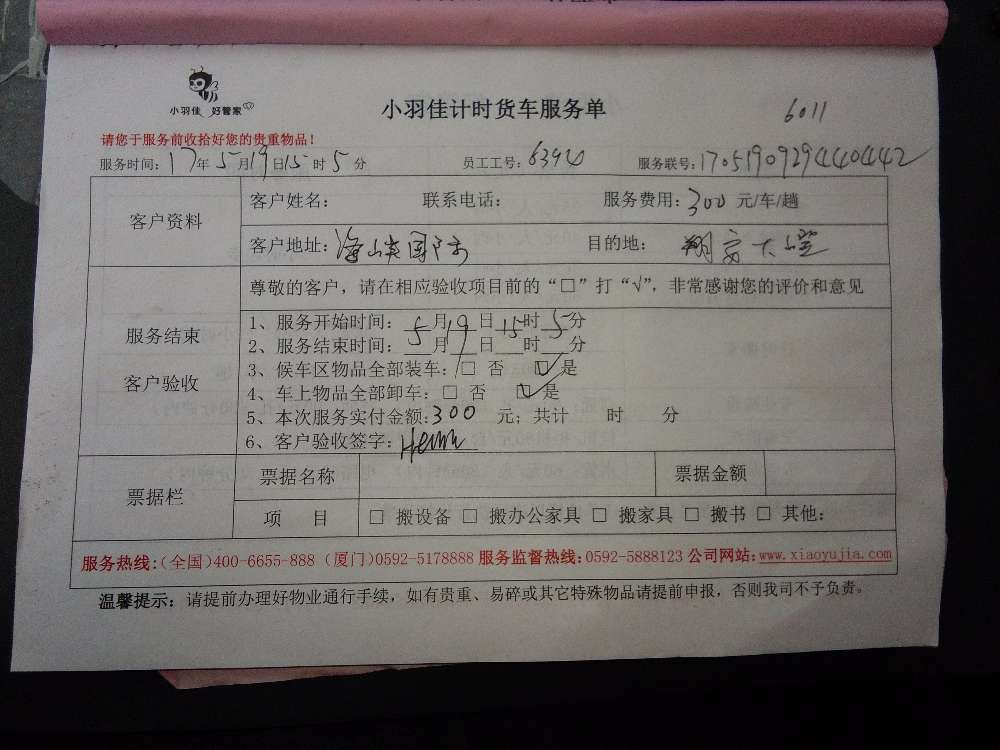 小羽佳 好管家
小羽佳计时货车服务单
6011
请您于服务前收拾好您的贵重物品！
服务时间：17年5月19日15时5分 员工工号： 服务联号：
客户资料
客户姓名： 联系电话： 服务费用：300元/车/趟
客户地址：海峡国际 目的地：翔安大嶝
服务结束
客户验收
尊敬的客户，请在相应验收项目前的“□”打“√”，非常感谢您的评价和意见
1、服务开始时间：5月19日15时5分
2、服务结束时间：___月___日___时___分
3、候车区物品全部装车：□ 否 ☑ 是
4、车上物品全部卸车：□ 否 ☑ 是
5、本次服务实付金额:300 元；共计 时 分
6、客户验收签字：
票据栏
票据名称 票据金额
项 目 □ 搬设备 □ 搬办公家具 □ 搬家具 □ 搬书 □ 其他：
服务热线:(全国)400-6655-888 (厦门)0592-5178888 服务监督热线:0592-5888123 公司网站:www.xiaoyujia.com
温馨提示：请提前办理好物业通行手续，如有贵重、易碎或其它特殊物品请提前申报，否则我司不予负责。